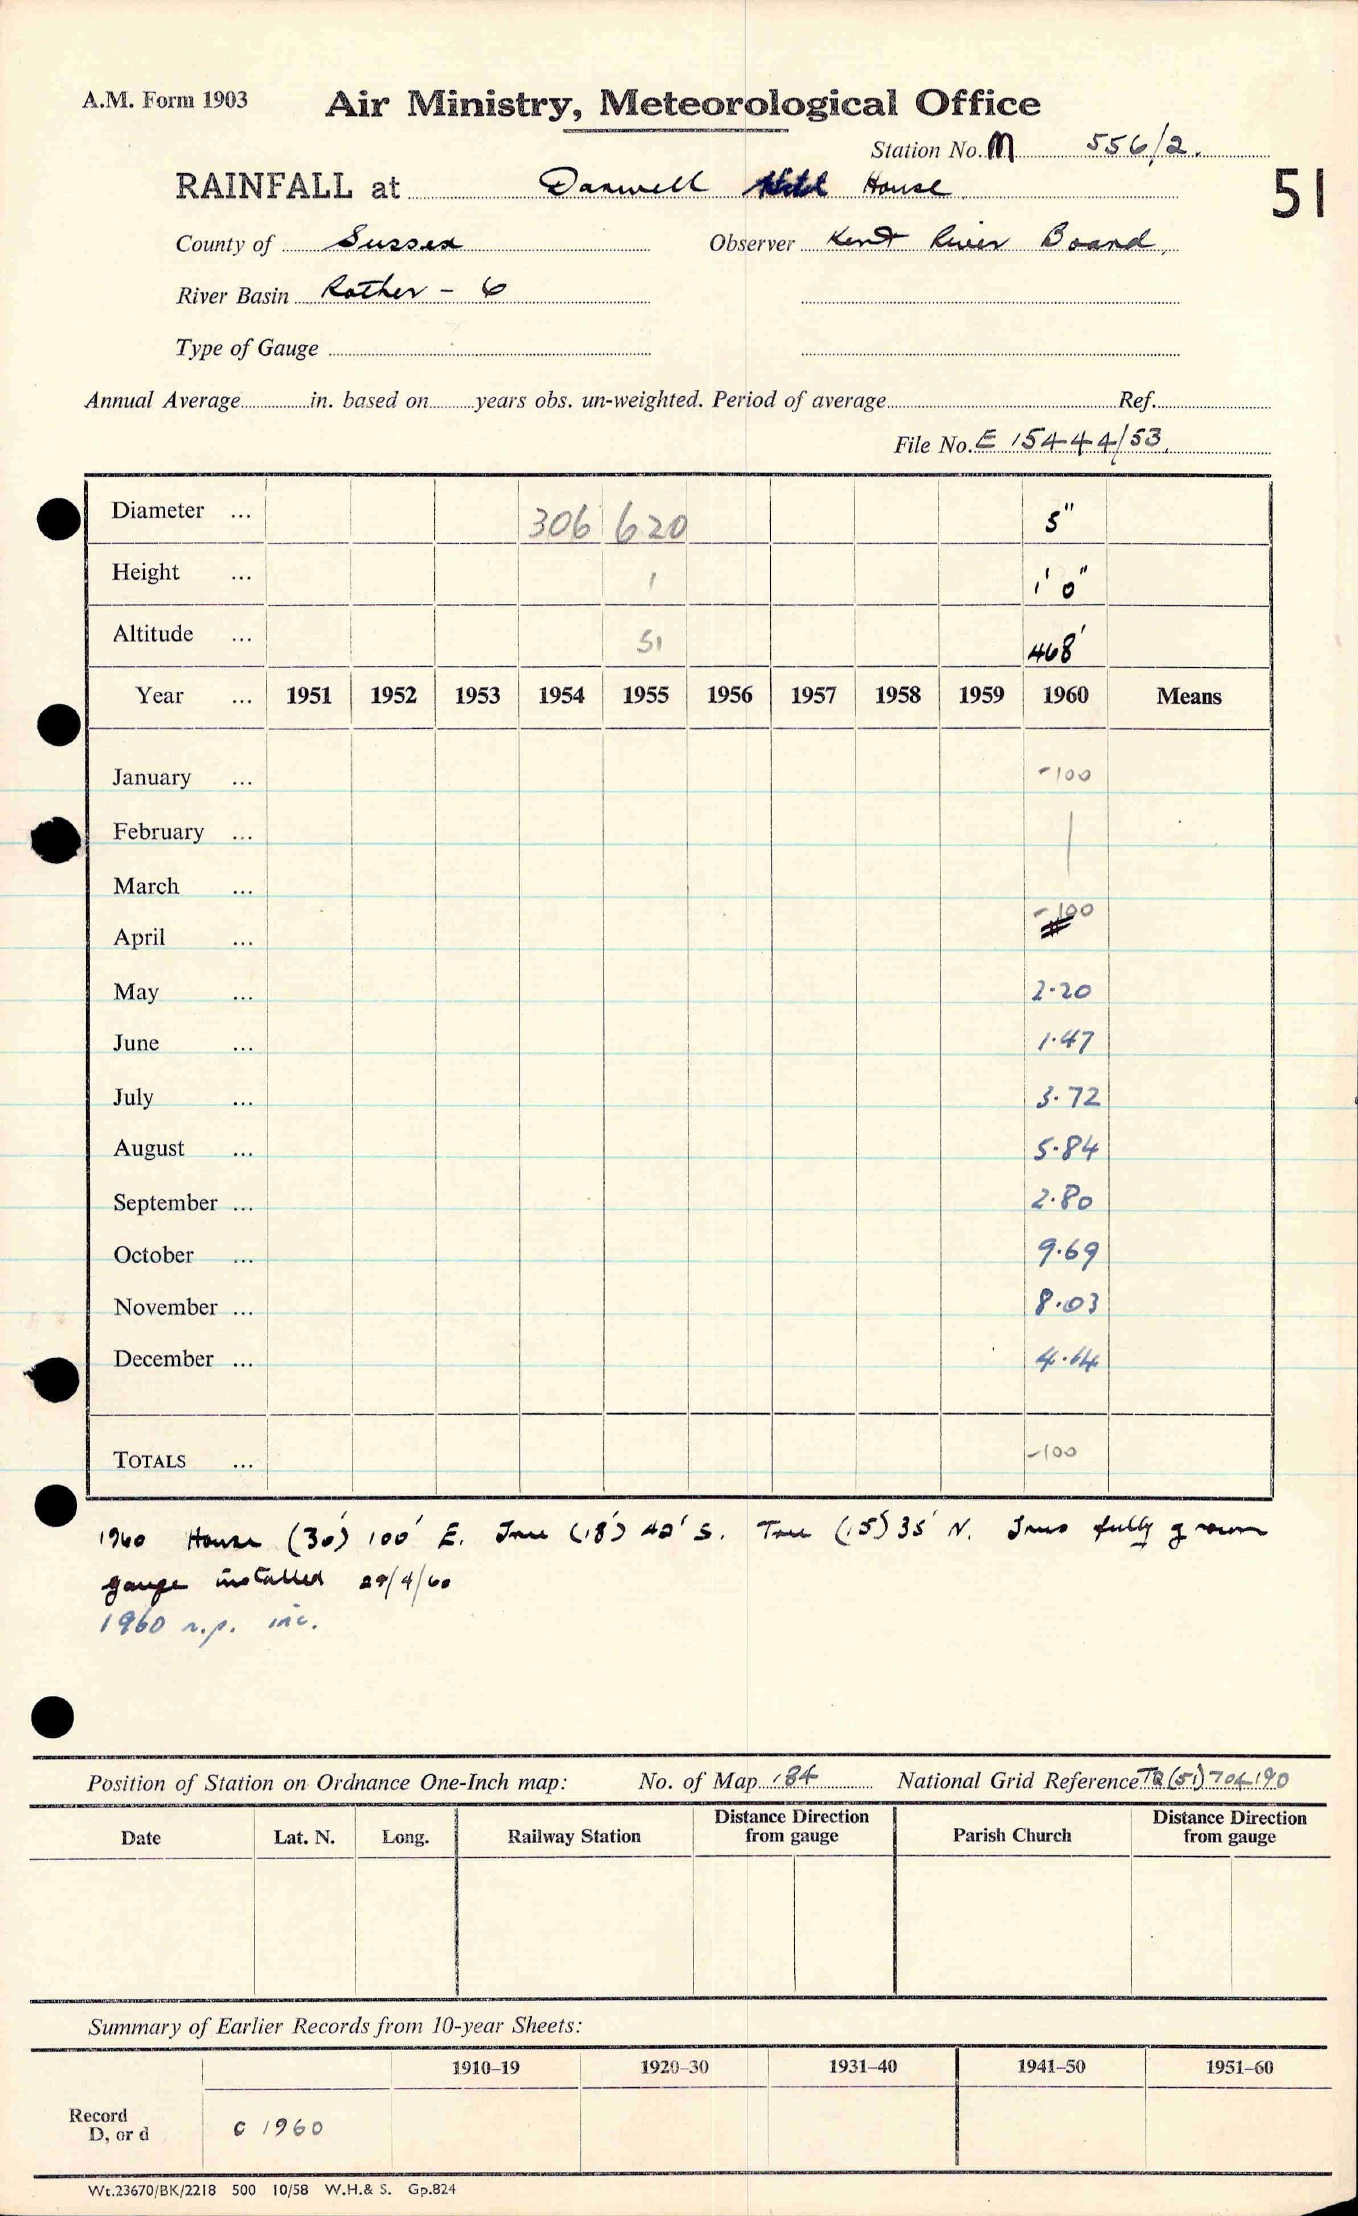 A.M. Form 1903 Air Ministry, Meteorological Office
Station No. M 556/2.
51
RAINFALL at Darwell House
County of Sussex Observer Kent River Board,
River Basin Rother - 6
Type of Gauge
Annual Average in. based on years obs. un-weighted. Period of average Ref.
File No. E 15444/53.
Diameter ... 306 620 5"
Height ... 1 1' 0"
Altitude ... 51 468'
Year ... 1951 1952 1953 1954 1955 1956 1957 1958 1959 1960 Means
January ... -100
February ...
March ...
-100
April ...
May ... 2.20
June ... 1.47
July ... 3.72
August ... 5.84
September ... 2.80
October ... 9.69
November ... 8.03
December ... 4.14
TOTALS ... -100
1960 House (30') 100' E. Tree (18') 42' S. Tree (15) 35' N. Trees fully grown
gauge installed 29/4/60
1960 n.p. inc.
Position of Station on Ordnance One-Inch map: No. of Map 184 National Grid Reference TQ(51)704190
Date Lat. N. Long. Railway Station Distance Direction from gauge Parish Church Distance Direction from gauge
Summary of Earlier Records from 10-year Sheets:
1910–19 1920–30 1931–40 1941–50 1951–60
Record
D, or d c 1960
Wt.23670/BK/2218 500 10/58 W.H.& S. Gp.824